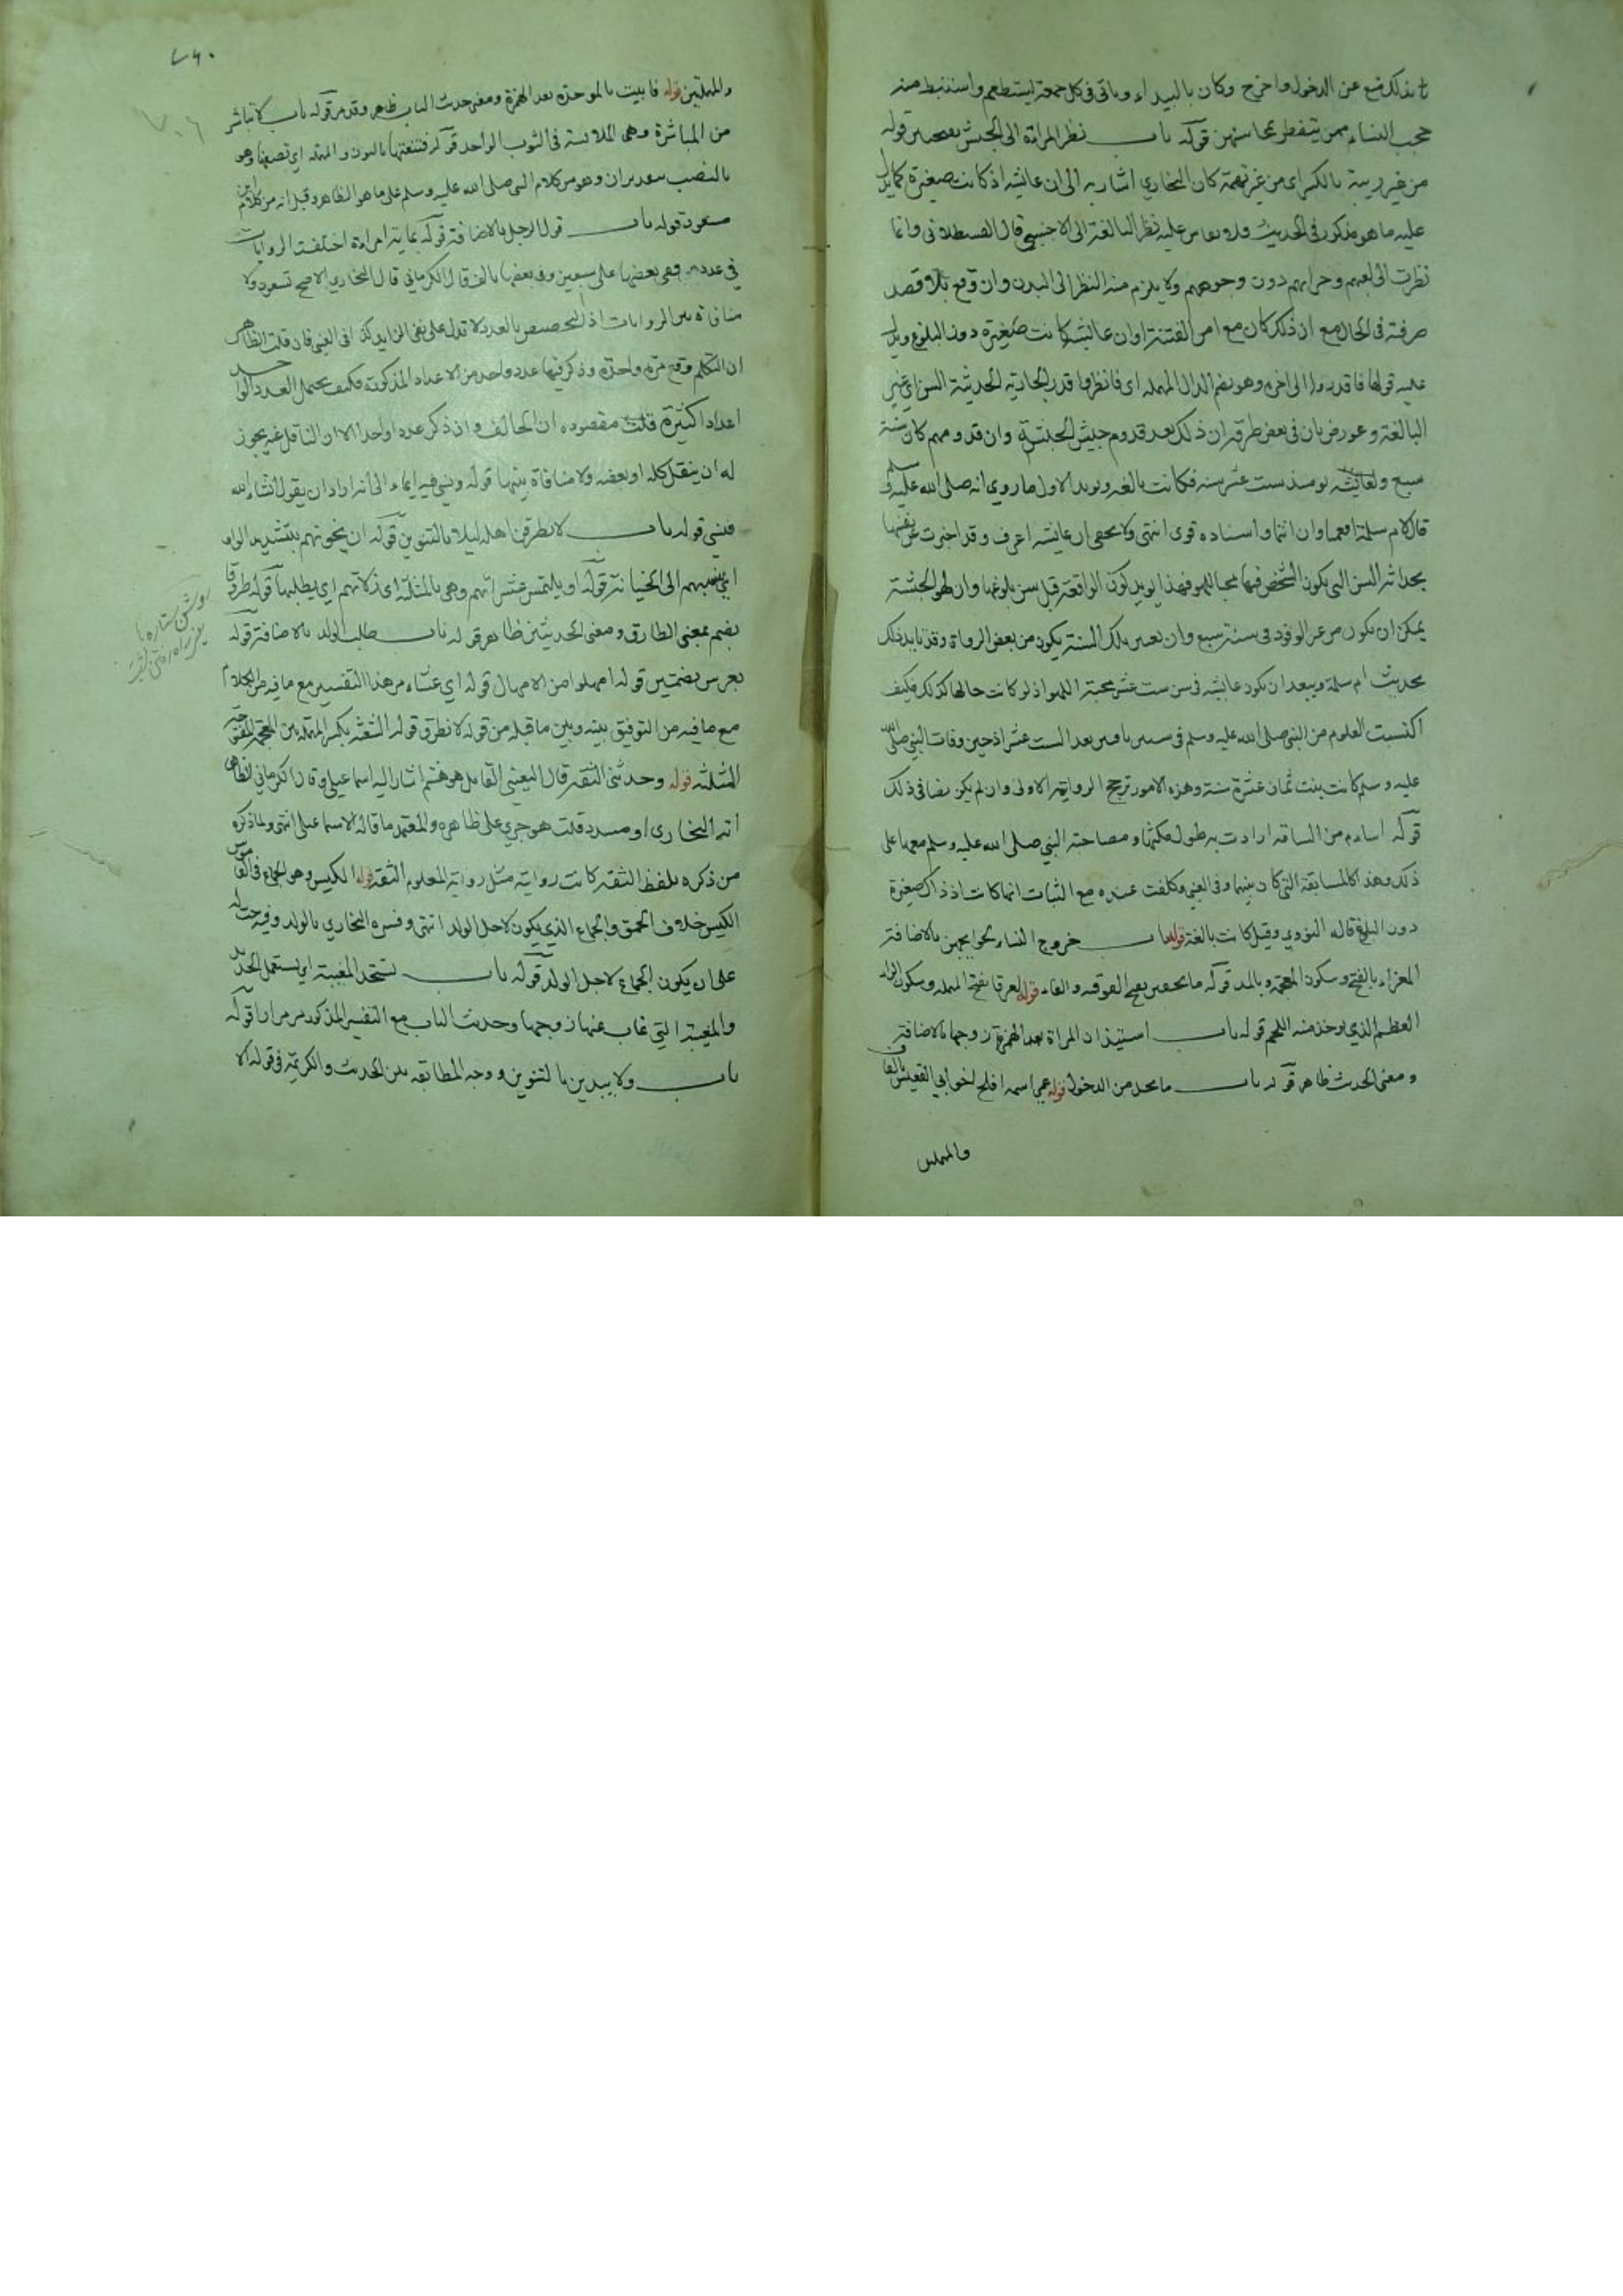 بذلك منع عن الدخول واخرج وكان بالبيداء وياتى فى كل جمعة ليستطعم واستنبط منه
حجب النساء ممن يتفطن بمحاسنهن قوله باب نظر المراة الى الحبش بعصهم قوله
من غير ريبة بالكسر اى من غير تهمة كان البخاري اشار به الى ان عايشه اذ كانت صغيرة كما يدل
عليه ما هو مذكور فى الحديث ولا يقاس عليه نظر البالغة الى الاجنبي قال القسطلانى وانما
نظرت الى لعبهم وحرابهم دون وجوههم ولا يلزم منه النظر الى البدن وان وقع بلا قصد
صرفته فى الحال مع ان ذلك كان مع امن الفتنة او ان عايشه كانت صغيرة دون البلوغ ويدل
عليه قولها فاقدروا الى اخره وهو بضم الدال المهملة اى فانظروا قدر الجارية الحديثة السن اى غير
البالغة وعورض بان فى بعض طرقه ان ذلك بعد قدوم جيش الحبشة وان قدومهم كان سنة
سبع ولعايشه يومئذ ست عشر سنه فكانت بالغه ويويد الاول ما روي انه صلى الله عليه وسلم
قال لام سلمة افعميا وان انتما واسناده قوى انتهى ولا يخفى ان عايشه اعرف وقد اخبرت عن نفسها
بحداثة السن التى يكون الشخص فيها محبا للهو فهذا يويد كون الواقعة قبل سن بلوغها وان لهو الحبشة
يمكن ان يكون من غير الوفود فى سنة سبع وان تعيين تلك السنة يكون من بعض الرواة وقد تايد ذلك
بحديث ام سلمة ويبعد ان يكون عايشه فى سن ست عشر محبة اللهو اذ لو كانت حالها كذلك فكيف
اكتسبت العلوم من النبي صلى الله عليه وسلم فى سنين بعد الست عشر اذ حين وفات النبي صلى الله
عليه وسلم كانت بنت ثمان عشرة سنة وهذه الامور ترجح الرواية الاولى وان لم يكن نصا فى ذلك
قوله اسام من السامة ارادت به طول مكثها ومصاحبة النبي صلى الله عليه وسلم معها على
ذلك وهذا كالمسابقة التى كان بينهما وفى العينى وكلفت عنده مع البنات انما كانت اذ ذاك صغيرة
دون البلوغ قاله النووي وقيل كانت بالغة قوله باب خروج النساء لحوايجهن بالاضافة
العزاء بالفتح وسكون المعجمة وبالمد قوله ما تخفين بفتح الفوقيه والفاء قوله لعرقا بفتح المهملة وسكون الراء
العظم الذي يوخذ منه اللحم قوله باب استيذان المراة بعد الهمزة زوجها بالاضافة
ومعنى الحديث ظاهر قوله باب ما يحل من الدخول قوله عمى اسمه افلح اخو ابي القعيس بالقاف
والمهملين
٧٦٠
٧٠٦
والمهملتين قوله فابيت بالموحدة بعد الهمزة ومعنى حديث الباب ظاهر وقد مر قوله باب لا تباشر
من المباشرة وهى الملامسة فى الثوب الواحد قوله فتنعتها بالنون والمهملة اي تصفها وهو
بالنصب بتقدير ان وهو من كلام النبي صلى الله عليه وسلم على ما هو الظاهر وقيل انه من كلام ابن
مسعود قوله باب قول الرجل بالاضافة قوله بماية امراة اختلفت الروايات
فى عددهن ففى بعضها على سبعين وفى بعضها بالف قال الكرماني قال البخاري الاصح تسعون ولا
منافاة بين الروايات اذ التخصيص بالعدد لا تدل على نفى الزايد كذا فى العينى فان قلت الظاهر
ان التكلم وقع مرة واحدة وذكر فيها عدد واحد من الاعداد المذكورة فكيف يحتمل العدد الواحد
اعدادا كثيرة قلت مقصوده ان الحالف وان ذكر عددا واحدا الا ان الناقل عنه يجوز
له ان ينقل كله او بعضه ولا منافاة بينها قوله ونسى فيه ايماء الى انه اراد ان يقول انشاء الله
فنسى قوله باب لا يطرقن اهله ليلا بالتنوين قوله ان يخونهم بتشديد الواو
اي ينسبهم الى الخيانة قوله او يلتمس عثراتهم وهى بالمثلثة اى زلاتهم اي يطلبها قوله طروقا
بضم بمعنى الطارق ومعنى الحديثين ظاهر قوله باب طلب الولد بالاضافة قوله
بعرس بضمتين قوله امهلوا من الامهال قوله اي عشاء من هذا التفسير مع ما فيه من الكلام
مع ما فيه من التوفيق بينه وبين ما قبله من قوله لا تطرق قوله الشعثه بكسر المهملة بين المعجمة المفتوحة
المثلثه قوله وحدثنى الثقة قال العينى القايل هو هشيم اشار اليه اسماعيلى وقال الكرمانى الظاهر
انه البخارى او مسدد قلت هو جري على ظاهره والمعتمد ما قاله الاسماعيلى انتهى ولما ذكره
من ذكره بلفظ الثقة كانت روايته مثل رواية المعلوم الثقة قوله الكيس وهو الجماع فى القاموس
الكيس خلاف الحمق والجماع الذي يكون لاجل الولد انتهى وفسره البخاري بالولد وفيه حث له
على ان يكون الجماع لاجل الولد قوله باب تستحد المغيبة اي يستعمل الحديد
والمغيبة التي غاب عنها زوجها وحديث الباب مع التفسير المذكور مر مرارا قوله
باب ولا يبدين بالتنوين ووجه المطابقة بين الحديث والكريمة فى قوله الا
روشن ستاره